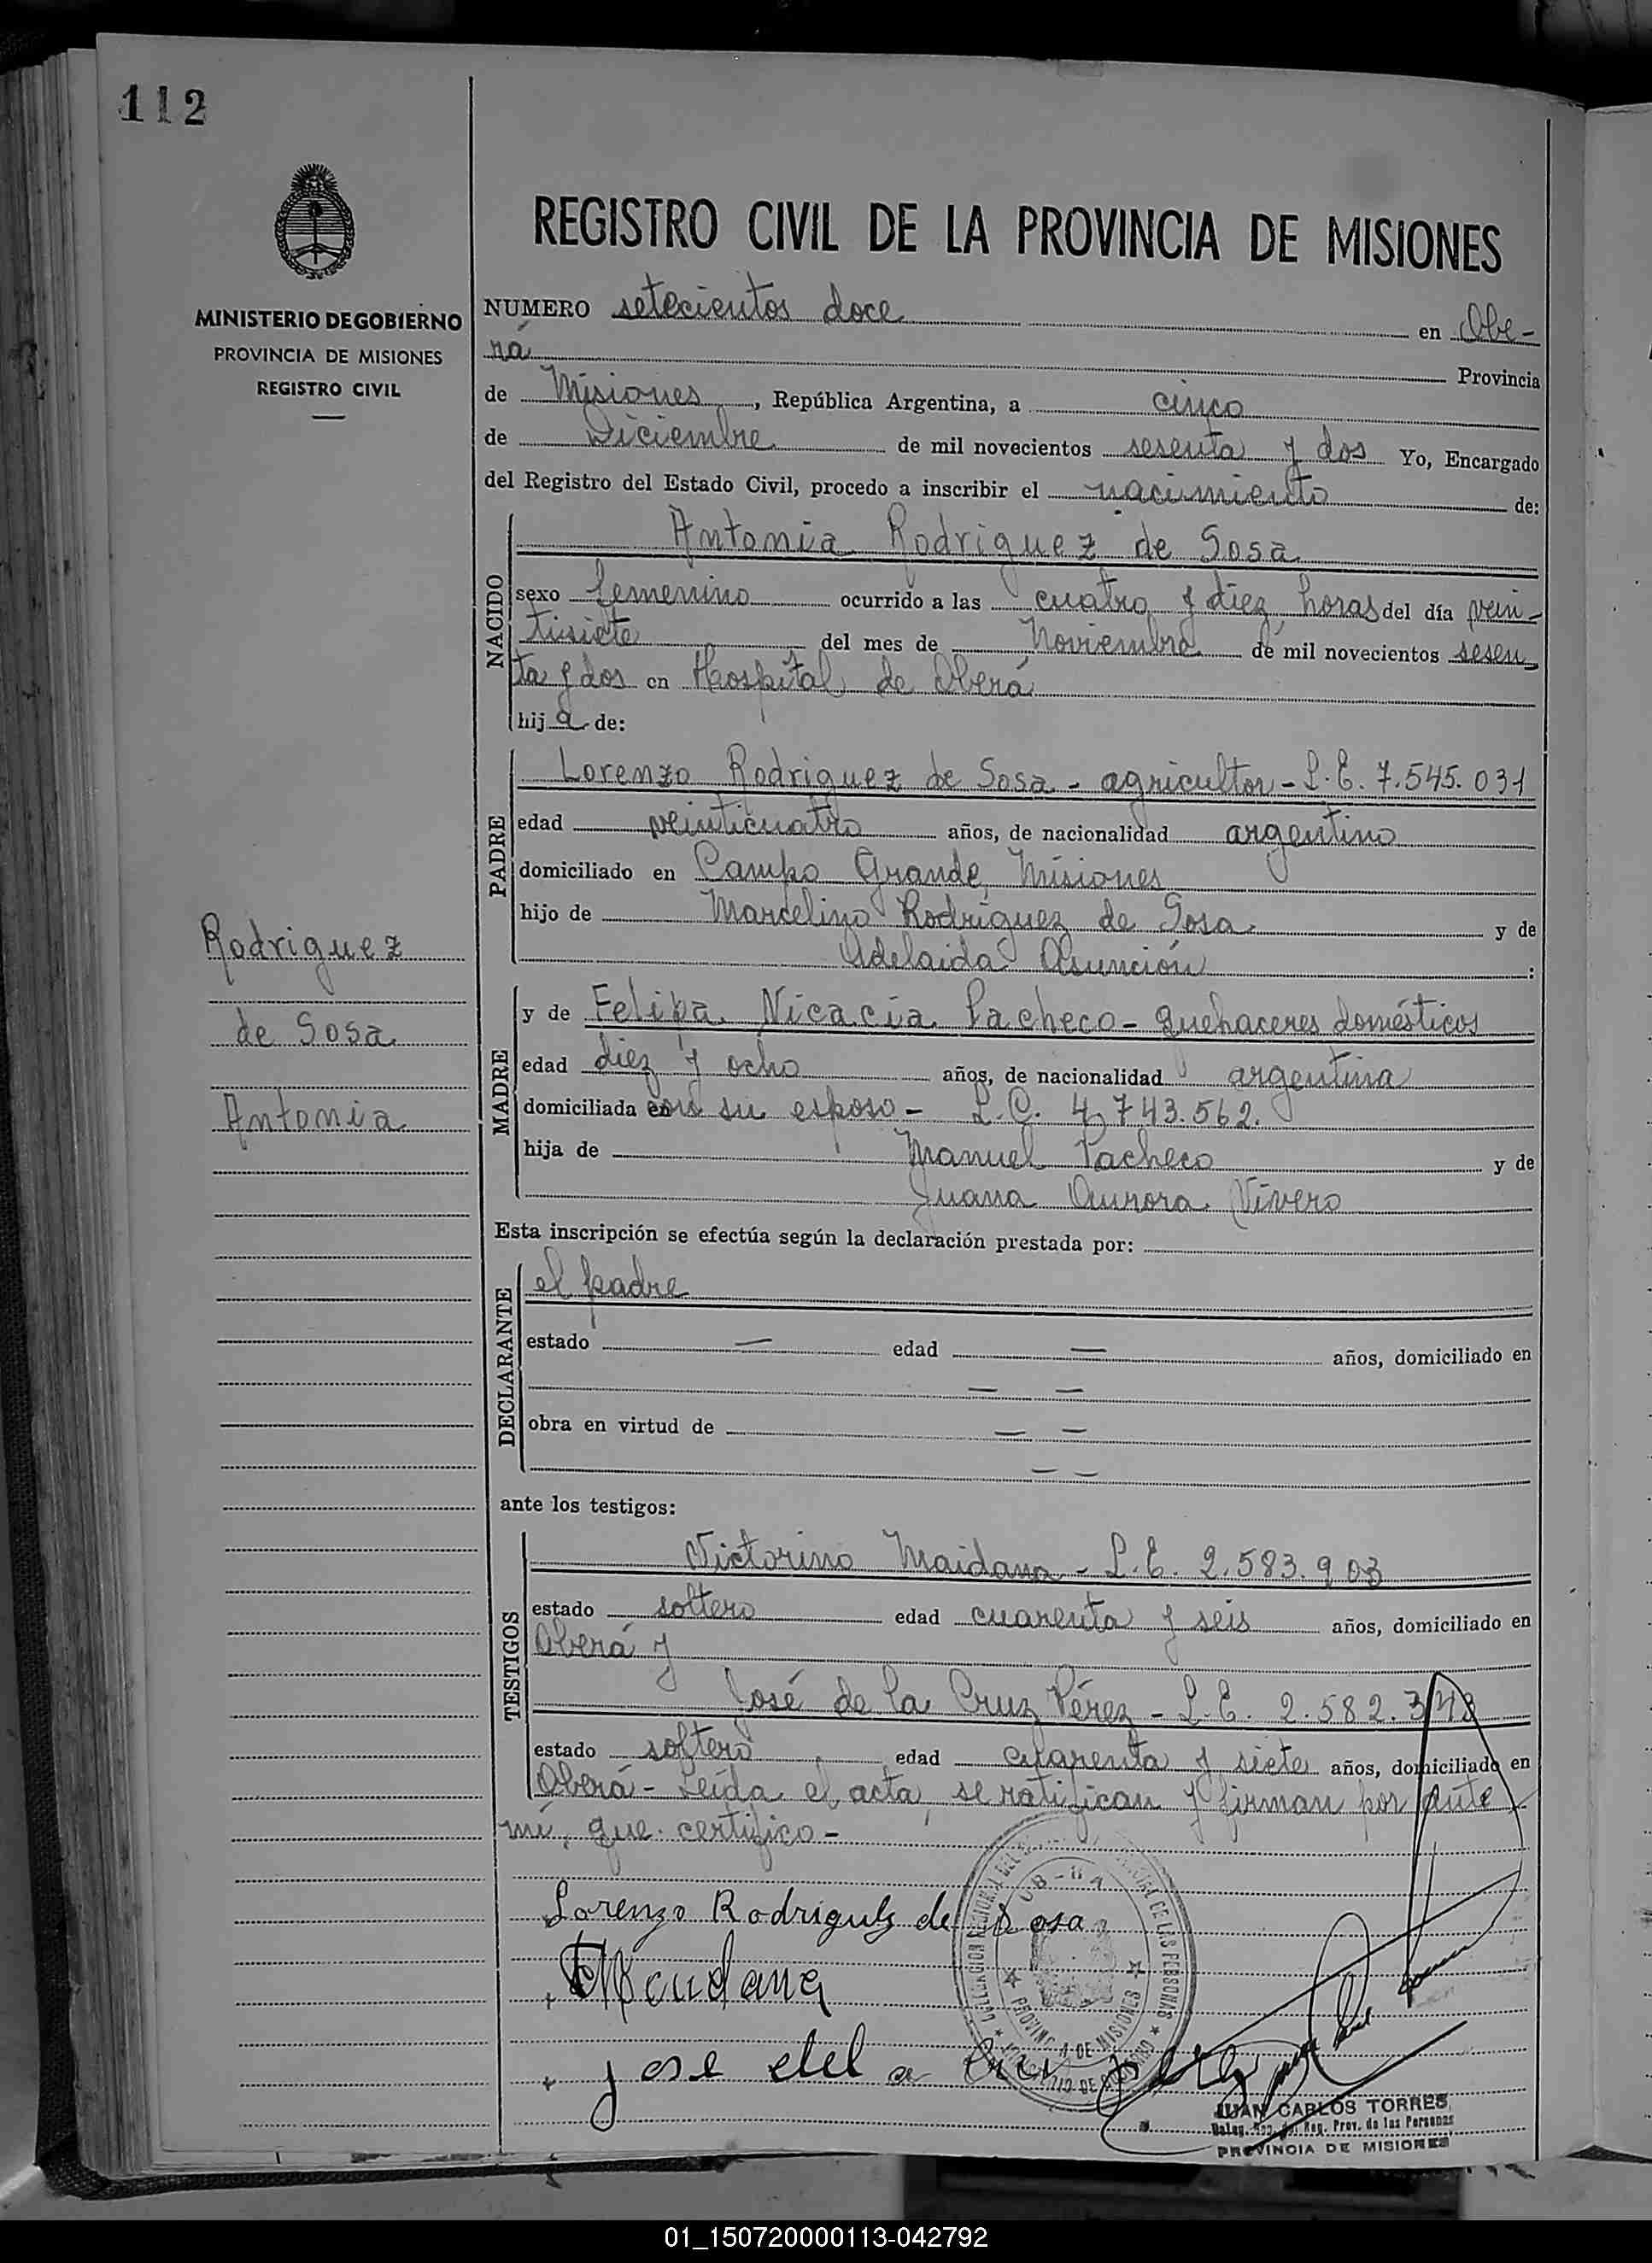 112
MINISTERIO DE GOBIERNO
PROVINCIA DE MISIONES
REGISTRO CIVIL
REGISTRO CIVIL DE LA PROVINCIA DE MISIONES
NUMERO setecientos doce en Obe-
rá Provincia
de Misiones, República Argentina, a cinco
de Diciembre de mil novecientos sesenta y dos Yo, Encargado
del Registro del Estado Civil, procedo a inscribir el nacimiento de:
NACIDO
Antonia Rodriguez de Sosa
sexo femenino ocurrido a las cuatro y diez horas del día vein-
tisiete del mes de Noviembre de mil novecientos sesen
ta y dos en Hospital de Oberá
hija de:
PADRE
Lorenzo Rodriguez de Sosa - agricultor - L.E. 7.545.031
edad veinticuatro años, de nacionalidad argentino
domiciliado en Campo Grande, Misiones
hijo de Marcelino Rodríguez de Sosa y de
Adelaida Asunción :
MADRE
y de Felipa Nicacia Pacheco - quehaceres domésticos
edad diez y ocho años, de nacionalidad argentina
domiciliada con su esposo - L.C. 4.743.562.
hija de Manuel Pacheco y de
Juana Aurora Vivero
Rodriguez
de Sosa
Antonia
Esta inscripción se efectúa según la declaración prestada por:
DECLARANTE
el padre
estado — edad — años, domiciliado en
— —
obra en virtud de — —
— —
ante los testigos:
TESTIGOS
Victorino Maidana - L.E. 2.583.903
estado soltero edad cuarenta y seis años, domiciliado en
Oberá y
José de la Cruz Pérez - L.E. 2.582.348
estado soltero edad cuarenta y siete años, domiciliado en
Oberá - Leída el acta, se ratifican y firman por ante
mí, que certifico -
Lorenzo Rodriguez de Sosa
jose del a Cruz perez
PROVINCIA DE MISIONES
DE LAS PERSONAS
JUAN CARLOS TORRES
Reg. Prov. de las Personas
PROVINCIA DE MISIONES
01_150720000113-042792